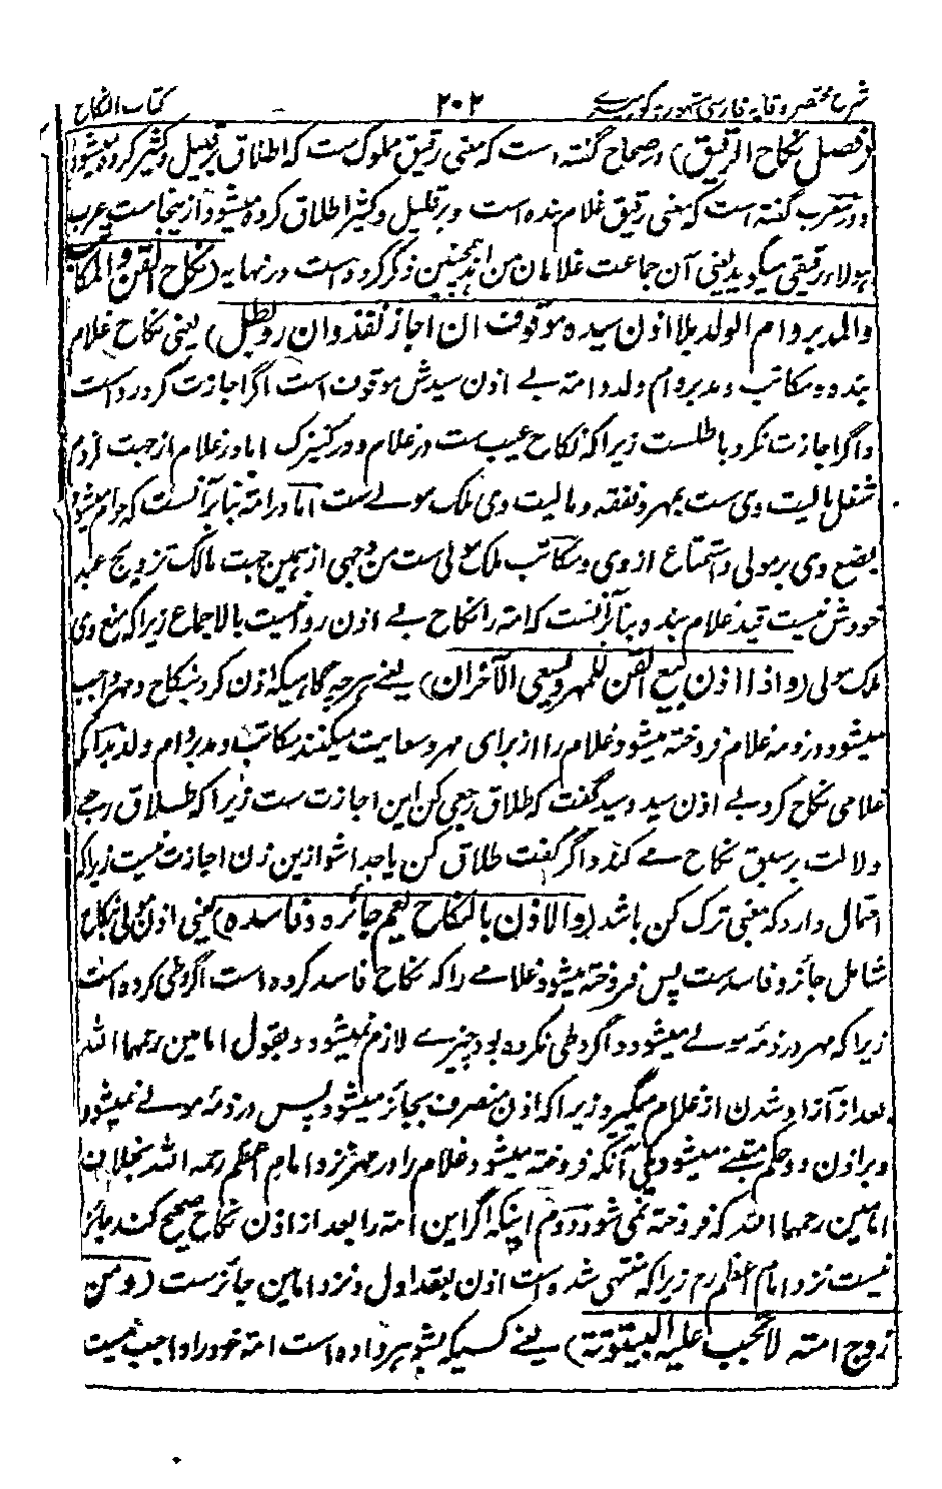 شرح مختصر وقایہ فارسی مشہور بہ کور میری ۲۰۲ کتاب النکاح
(فصل نکاح الرقیق) در صحاح گفتہ است کہ معنی رقیق مملوک ست کہ اطلاق بر قلیل و کثیر کردہ میشود
و در مغرب گفتہ است کہ معنی رقیق غلام بندہ است و بر قلیل و کثیر اطلاق کردہ میشود از ینجاست عرب
ہولاء رقیقی میگوید یعنی آن جماعت غلامان من اند ہمچنین ذکر کردہ است در نہایہ (نکاح القن والمکاتب
والمدبر وام الولد بلا اذن سیدہ موقوف ان اجاز نفذ وان رد بطل) یعنی نکاح غلام
بندہ و مکاتب و مدبر و ام ولد و امتہ بے اذن سیدش موقوف است اگر اجازت کرد رواست
و اگر اجازت نکرد باطلست زیرا کہ نکاح عیب ست در غلام و در کنیزک اما در غلام از جہت لزوم
شغل مالیت وی ست بمہر و نفقہ و مالیت وی ملک مولے ست اما در امتہ بنا بر آنست کہ حرام میشود
بضع وی بر مولی و استمتاع از وی و مکاتب ملک مولی ست من وجہی از ہمین جہت مالک تزویج عبد
خودش نیست قید غلام بندہ بنا بر آنست کہ امتہ را نکاح بے اذن روا نیست بالاجماع زیرا کہ منع وی
ملک مولی (واذا اذن بیع القن للمہر ویسعی الآخران) یعنے ہر چہ گاہیکہ اذن کرد بنکاح و مہر واجب
میشود در ذمہ غلام فروختہ میشود غلام را از برای مہر و سعایت میکنند مکاتب و مدبر و ام ولد بدانکہ
غلامی نکاح کرد بے اذن سید و سید گفت کہ طلاق رجعی کن این اجازت ست زیرا کہ طلاق رجعے
دلالت بر سبق نکاح مے کند و اگر گفت طلاق کن یا جدا شو ازین زن اجازت نیست زیرا کہ
احتمال دارد کہ معنی ترک کن باشد (والاذن بالنکاح یعم جائزہ وفاسدہ) یعنی اذن مولی بنکاح
شامل جائز و فاسد ست پس فروختہ میشود غلامے را کہ نکاح فاسد کردہ است اگر وطی کردہ است
زیرا کہ مہر در ذمہ مولے میشود و اگر وطی نکردہ بود چیزے لازم نمیشود و بقول امامین رحمہا اللہ
بعد از آزاد شدن از غلام میگیرد زیرا کہ اذن منصرف بجائز میشود پس در ذمہ مولے نمیشود
و بر اذن دو حکم مبتنے میشود یکی آنکہ فروختہ میشود غلام را در مہر نزد امام اعظم رحمہ اللہ بخلاف
امامین رحمہا اللہ کہ فروختہ نمی شود دوم اینکہ اگر این امتہ را بعد از اذن نکاح صحیح کند جائز
نیست نزد امام اعظم رح زیرا کہ منتہی شدہ است اذن بعقد اول و نزد امامین جائز ست (ومن
زوج امتہ لا تجب علیہ البیتوتۃ) یعنے کسیکہ بشوہر دادہ است امتہ خود را واجب نیست